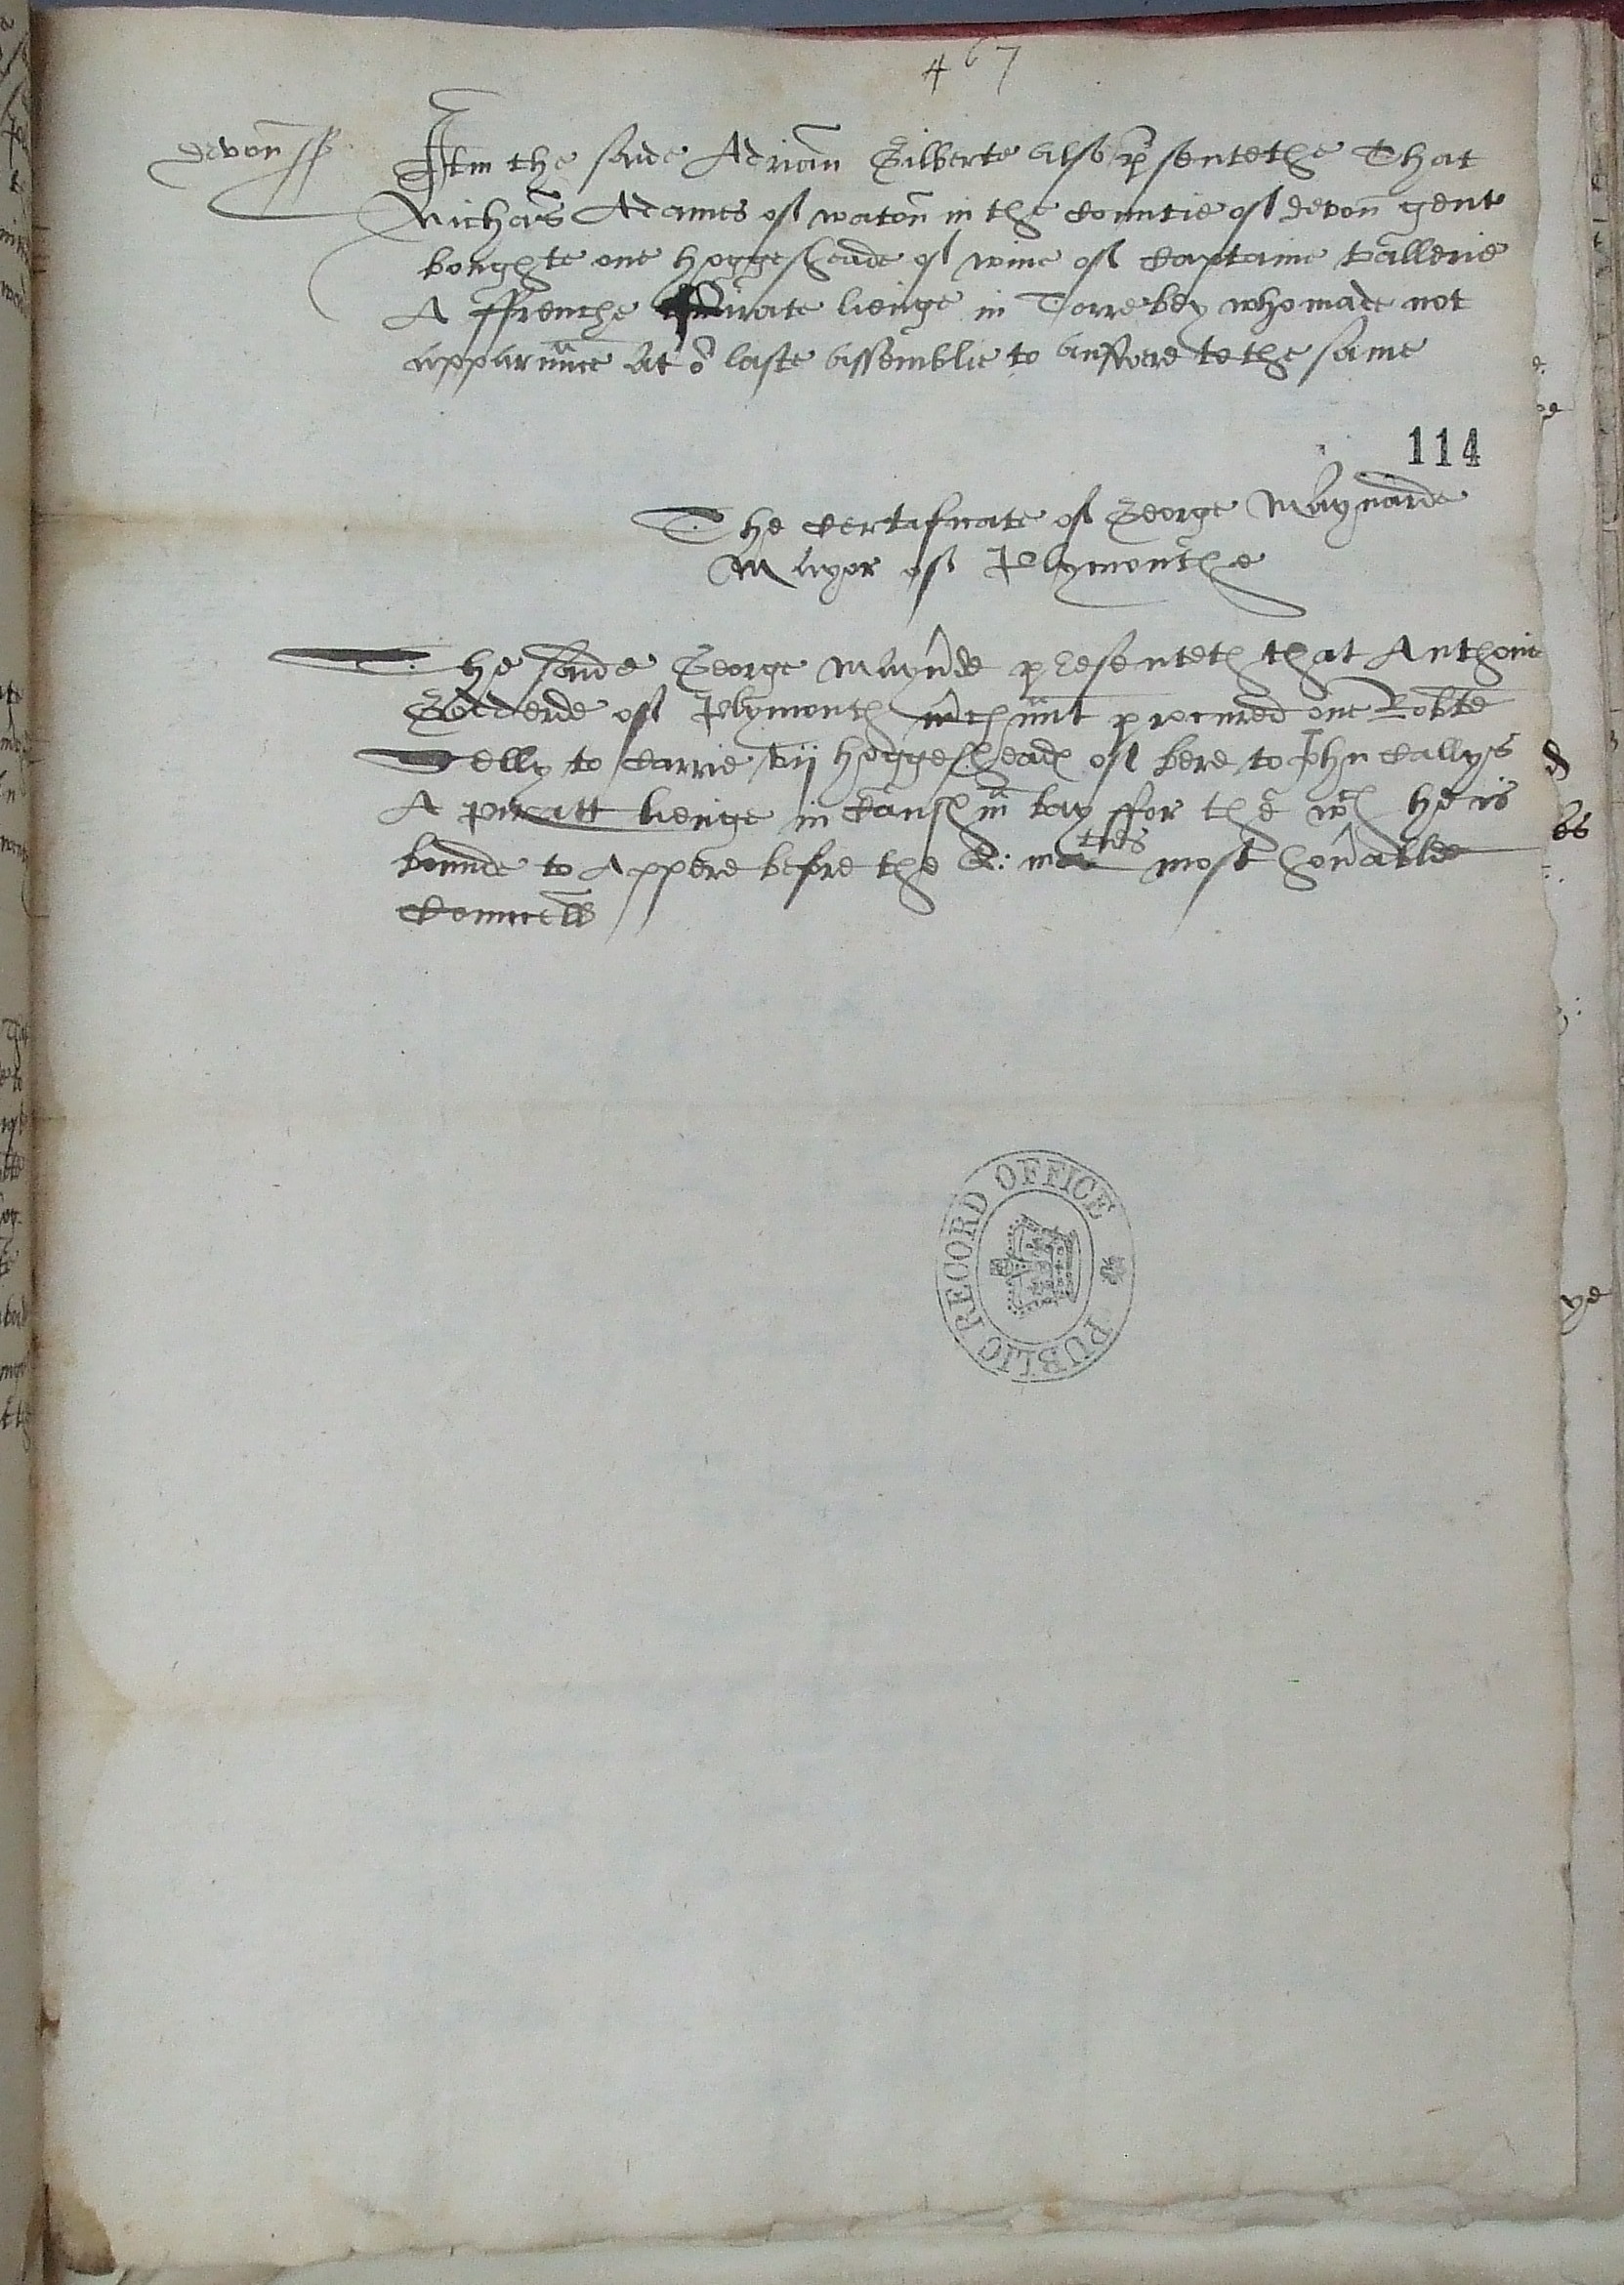 467
devon ss
Itm the saide Adrian Gilberte also psentethe That
Richard Adames of waton in the Countie of devon gent
boughte one hoggesheade of wine of Captaine vallerie
A ffrenche Pirate lienge in Torrebey who made not
apparunce at or laste assemblie to answere to the same
114
The Certificate of George Maynarde
Mayor of Plymouthe
The saide George maynde presenteth that Anthonie
Godderde of Plymouth mchunt procured one Robte
to Carrie vij hoggesheads of bere to John Callys
A piratt lienge in Causham bay ffor the wch he is
bounde to Appere before the Q: maties most honable
Councell
PUBLIC RECORD OFFICE